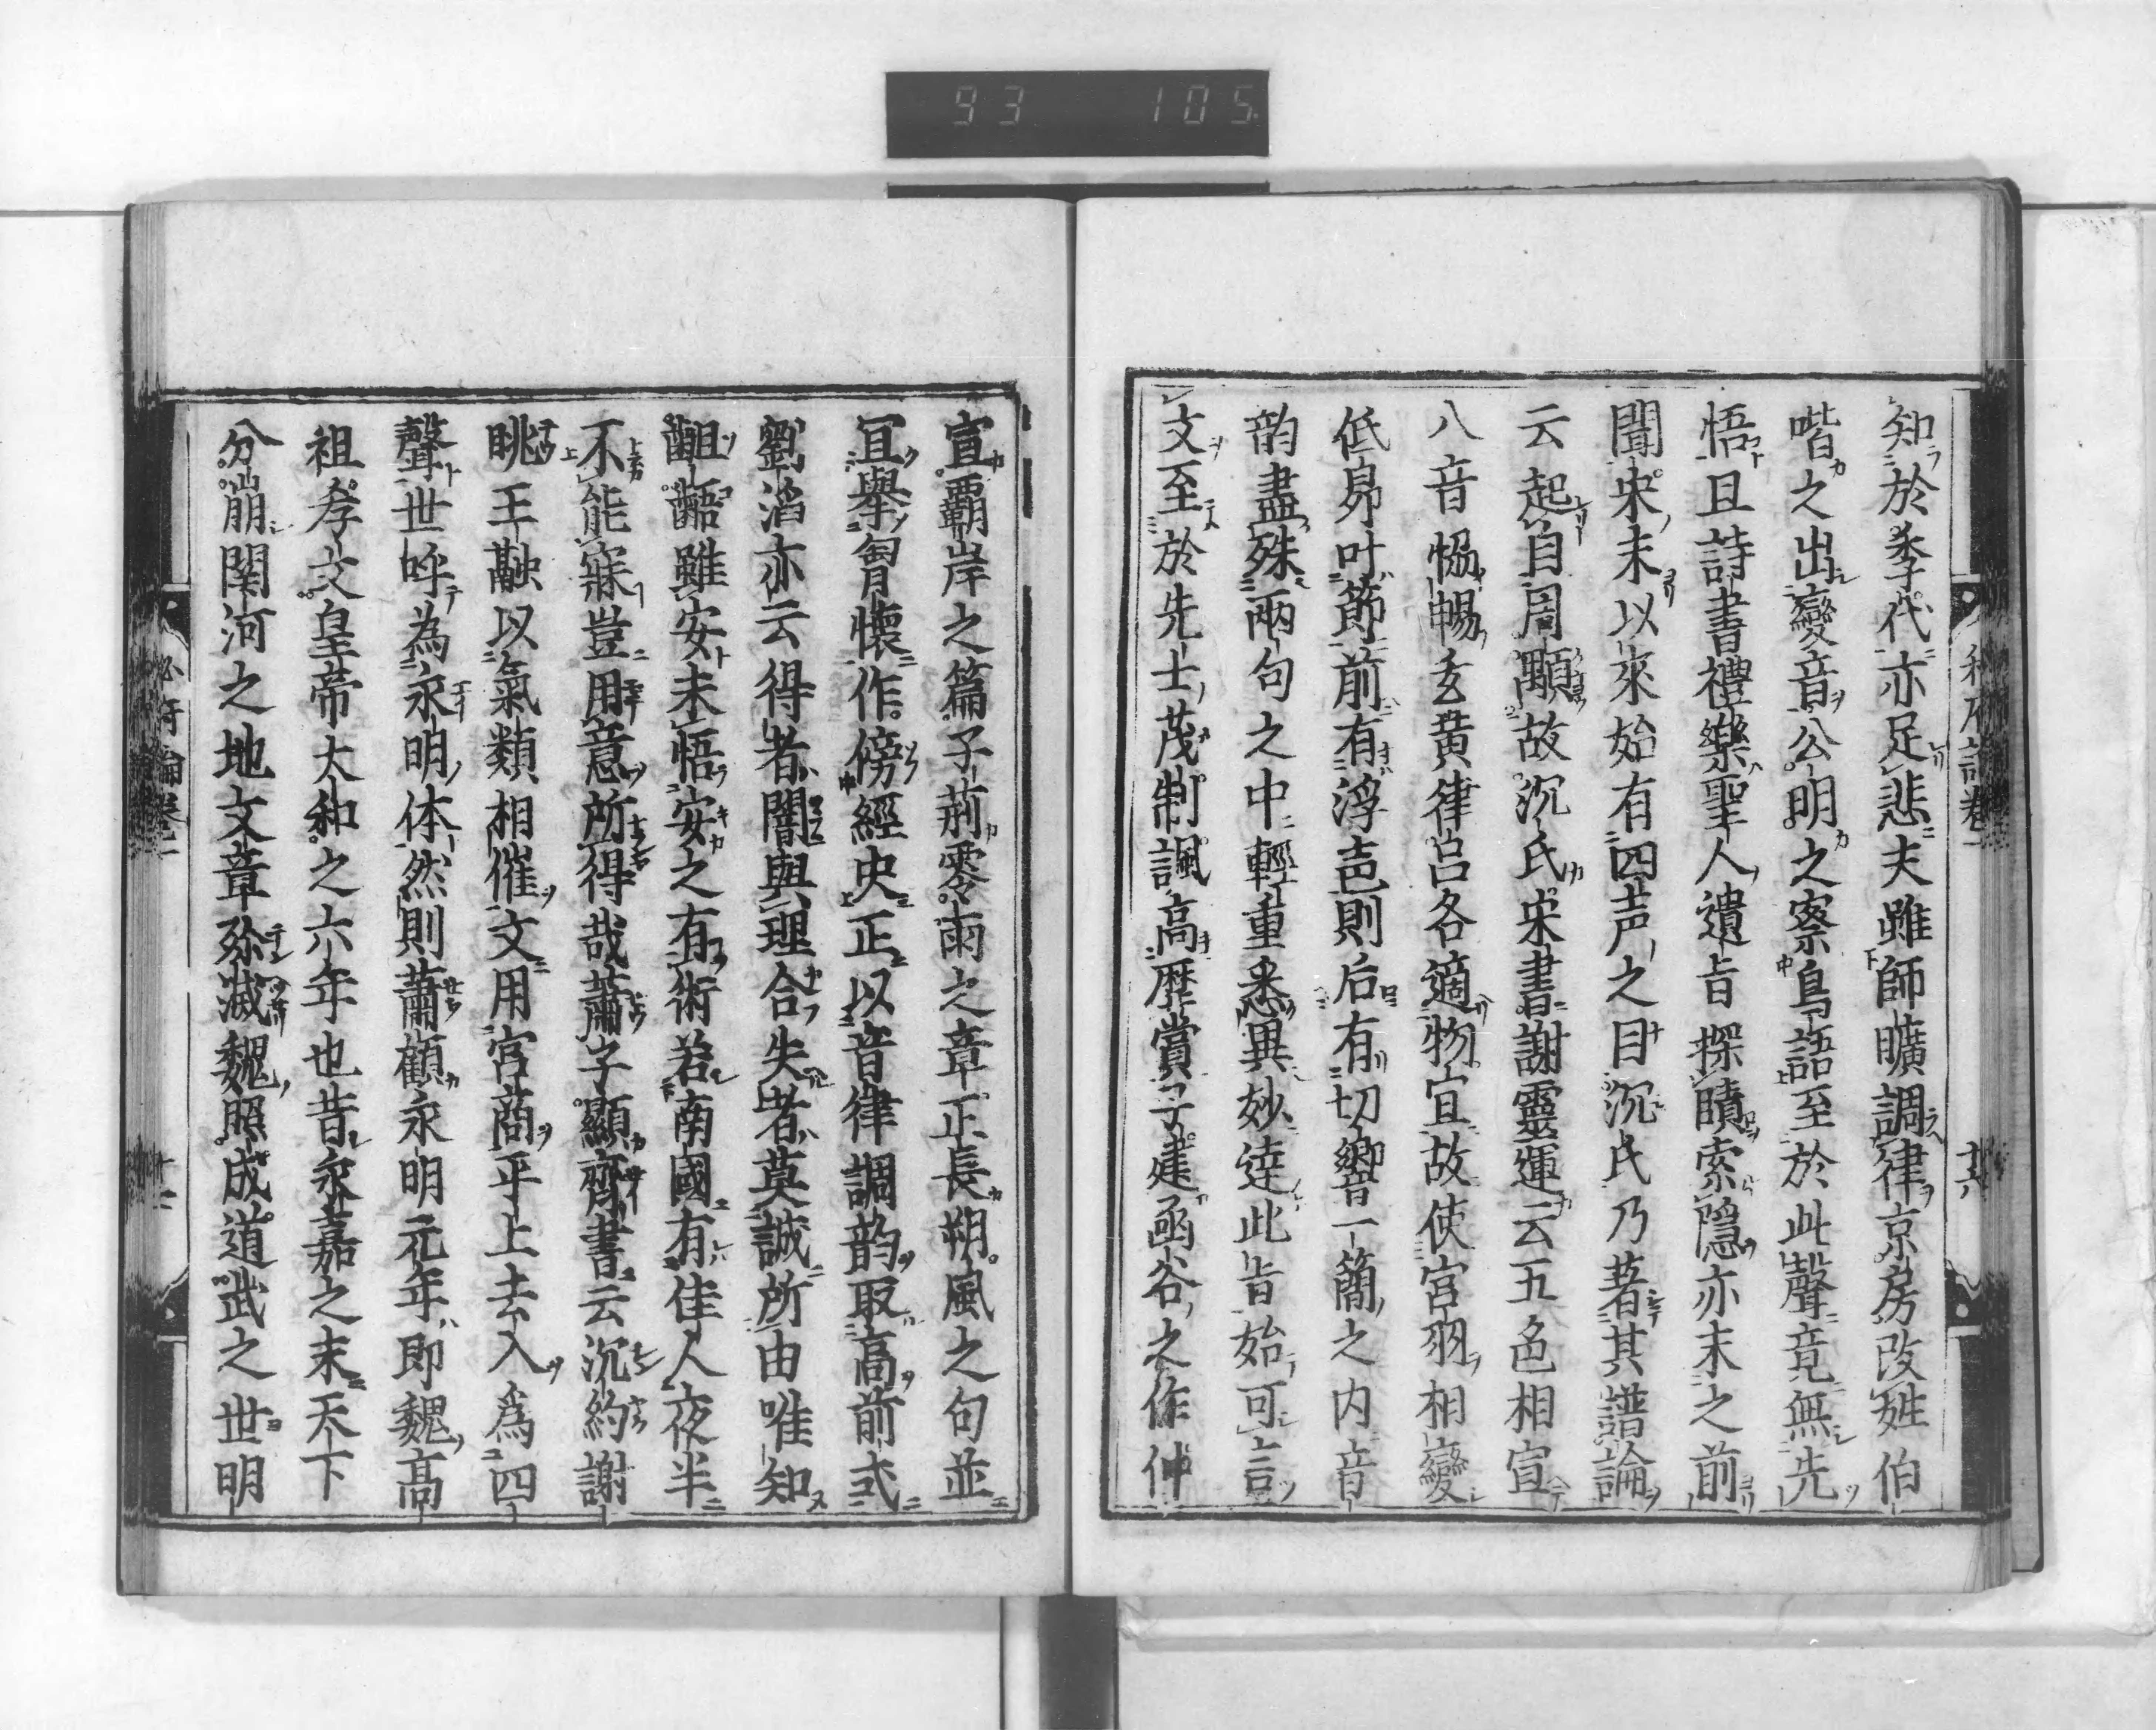 93 105
知於季代亦足悲夫雖師曠調律京房改姓伯
喈之出變音公明之察鳥語至於此聲竟無先
悟且詩書禮樂聖人遺旨探賾索隱亦未之前
聞宋末以來始有四声之目沉氏乃著其譜論
云起自周顒故沉氏宋書謝靈運云五色相宣
八音恊暢玄黄律呂各適物宜故使宮羽相變
低昻叶節前有浮声則后有切響一簡之内音
韵盡殊兩句之中輕重悉異妙達此旨始可言
文至於先士茂制諷高歴賞子建函谷之作仲
宣覇岸之篇子荊零雨之章正長朔風之句並
冝舉胷懷作傍經史正以音律調韵取高前式
劉滔亦云得者闇與理合失者莫誠所由唯知
齟齬雖安未悟安之有術若南國有佳人夜半
不能寐豈用意所得哉蕭子顯齊書云沉約謝
眺王融以氣類相催文用宮商平上去入為四
聲世呼為永明体然則蕭顧永明元年即魏高
祖孝文皇帝大和之六年也昔永嘉之末天下
分崩関河之地文章殄滅魏照成道武之世明